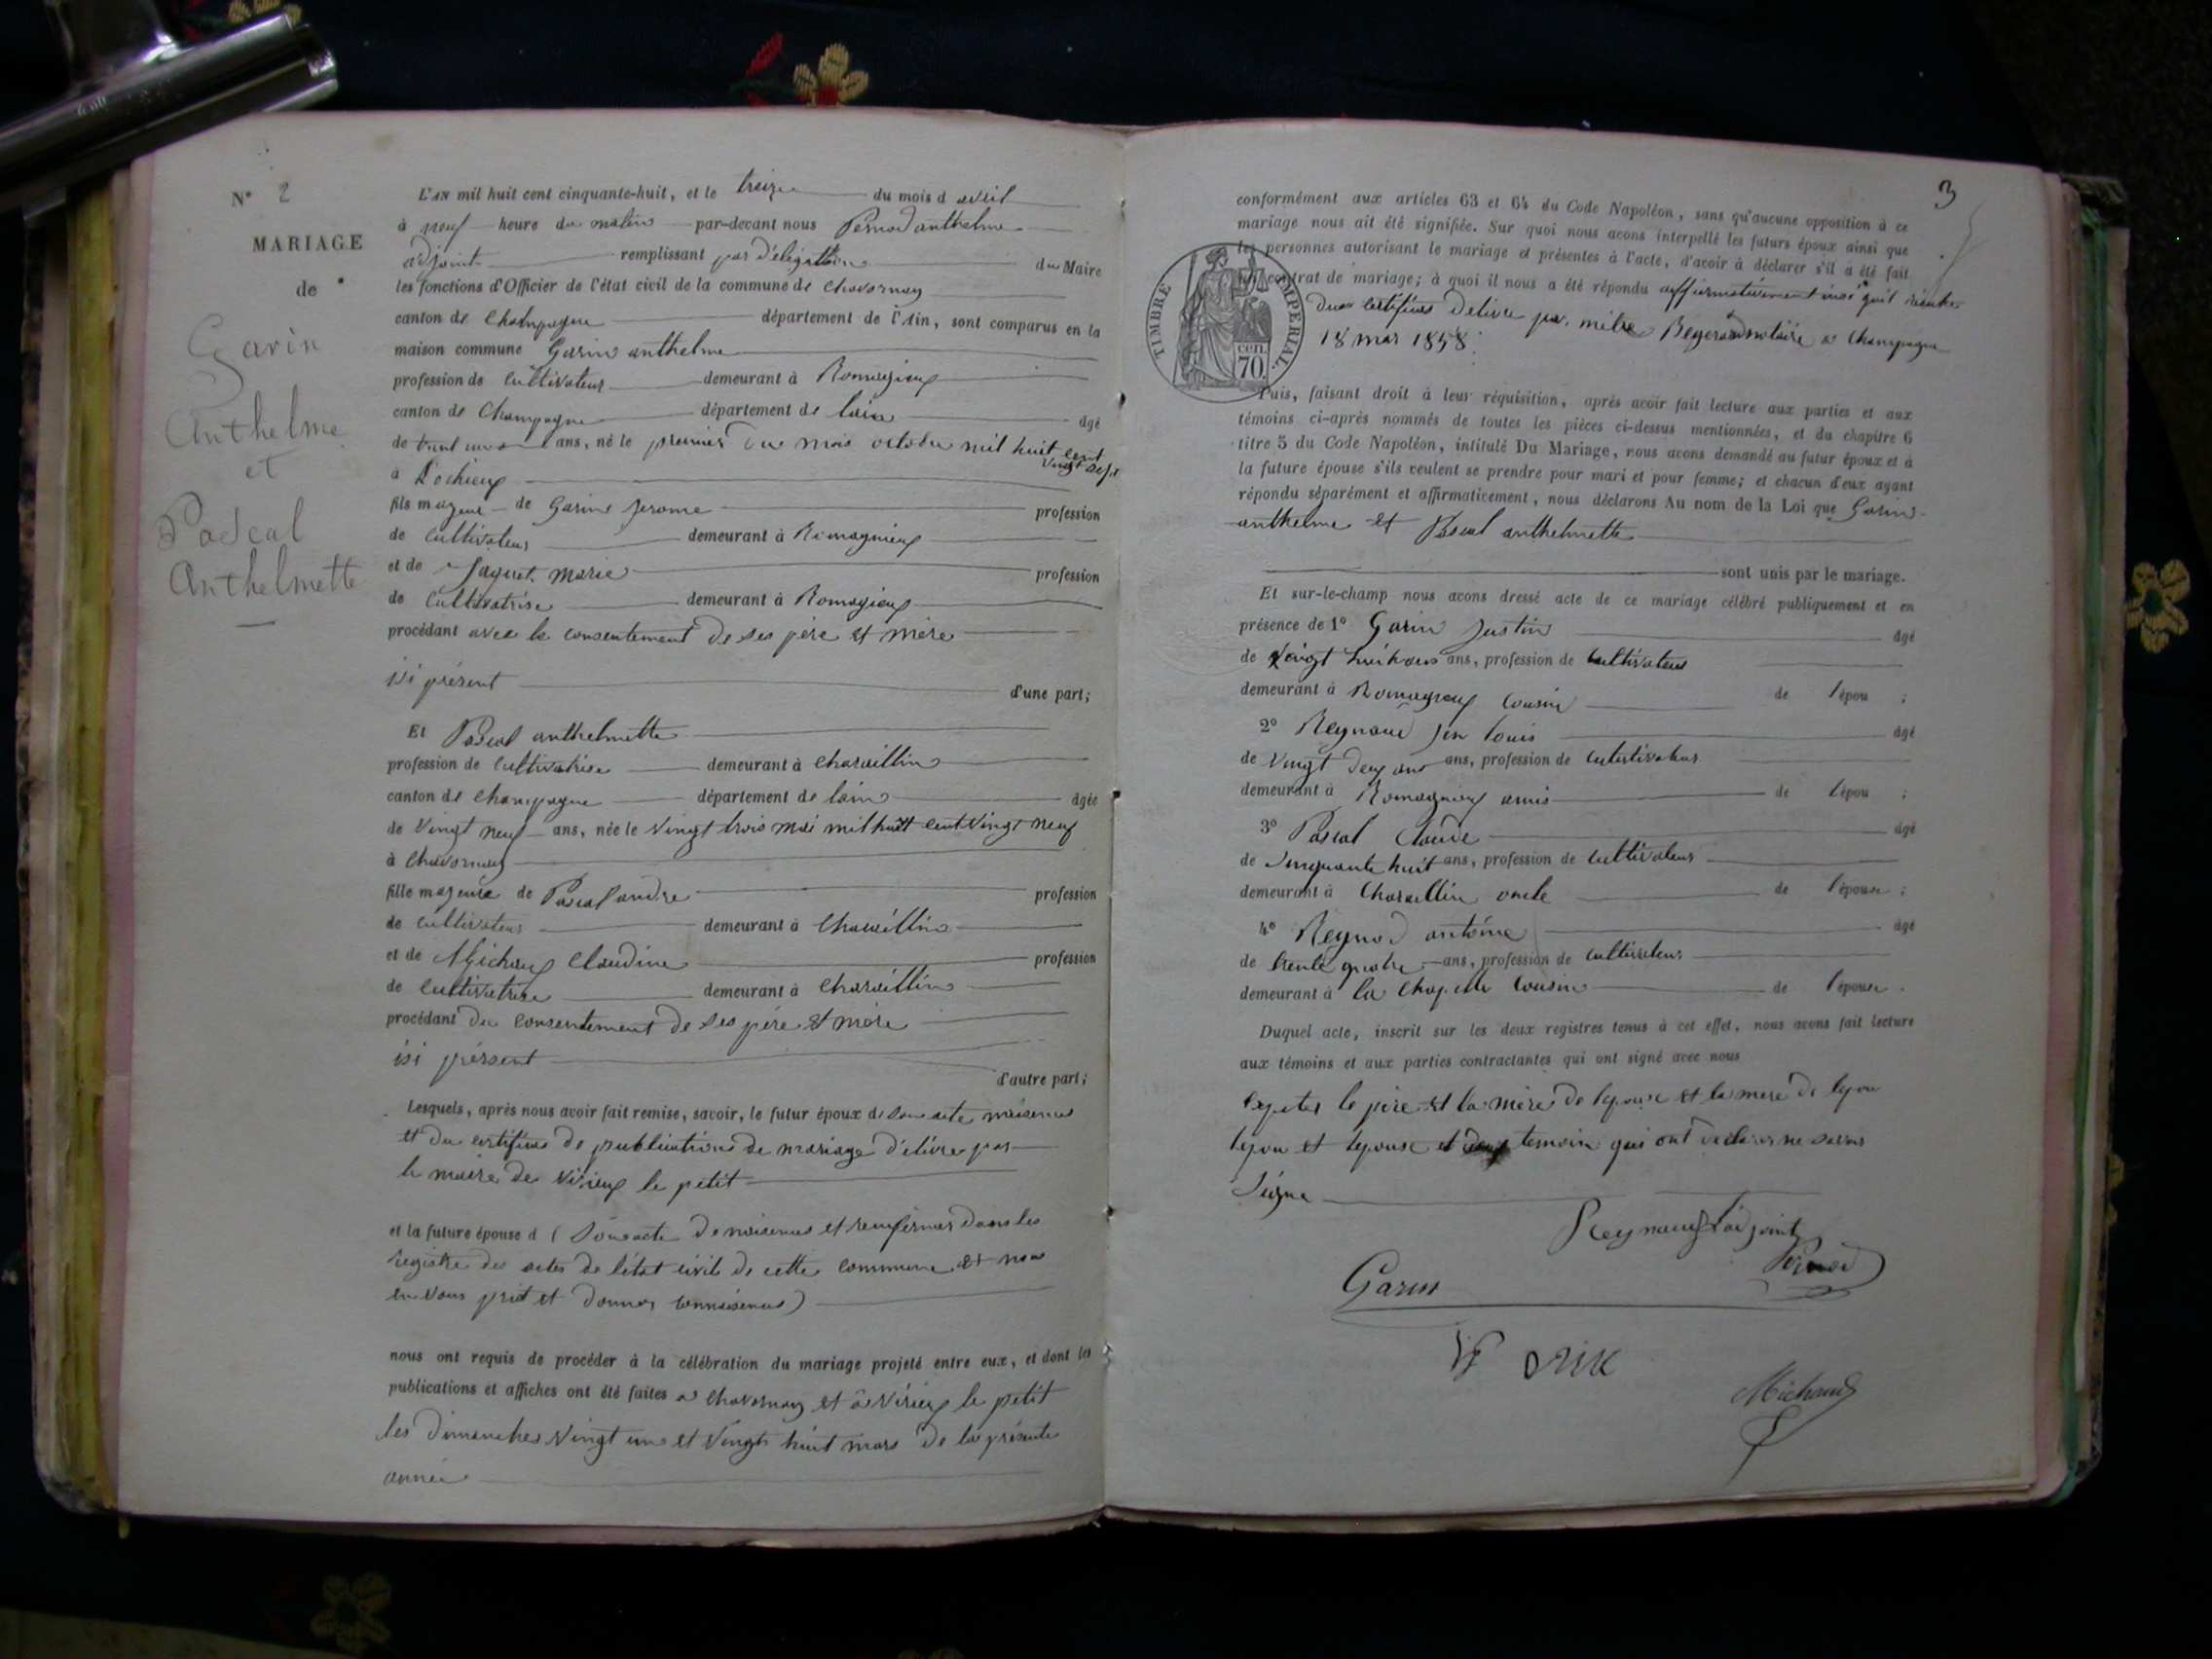 N° 2
MARIAGE
de
Garin
Anthelme
et
Pascal
Anthelmette
L'AN mil huit cent cinquante-huit, et le treize du mois d avril
à neuf heure du matin par-devant nous Pernod anthelme
adjoint remplissant par délégation du Maire
les fonctions d'Officier de l'état civil de la commune de Chavornay
canton de Champagne département de l'Ain, sont comparus en la
maison commune Garin anthelme
profession de cultivateur demeurant à Romagieux
canton de Champagne département de lain âgé
de trent ans, né le premier du mois octobre mil huit cent
vingt sept
à Lochieux
fils majeur de Garin Jerome profession
de cultivateur demeurant à Romagnieux
et de Jaquet Marie profession
de cultivatrise demeurant à Romagieux
procédant avec le consentement de ses père et mère
isi présent d'une part;
Et Pascal anthelmette
profession de cultivatrise demeurant à Charaillin
canton de Champagne département de lain âgée
de vingt neuf ans, née le vingt trois mai mil huit cent vingt neuf
à Chavornay
fille majeure de Pascal andre profession
de cultivateur demeurant à Charaillin
et de Michaux Claudine profession
de cultivatrise demeurant à Charaillin
procédant du consentement de ses père et mère
isi présent
d'autre part;
Lesquels, après nous avoir fait remise, savoir, le futur époux de son acte naisence
et du certificat de publication de mariage délivré par
le maire de Virieux le petit
et la future épouse d ( son acte de naisence et renfermer dans les
registre des actes de l'état civil de cette commune et nous
en vous prit et donner connaisence )
nous ont requis de procéder à la célébration du mariage projeté entre eux, et dont les
publications et affiches ont été faites a Chavornay et à Virieux le petit
les dimanches vingt un et vingt huit mars de la présente
année
3
conformément aux articles 63 et 64 du Code Napoléon, sans qu'aucune opposition à ce
mariage nous ait été signifiée. Sur quoi nous avons interpellé les futurs époux ainsi que
les personnes autorisant le mariage et présentes à l'acte, d'avoir à déclarer s'il a été fait
contrat de mariage; à quoi il nous a été répondu affirmativement insi qu'il résulte
dun certificat délivré par mètre notaire a Champagne
18 mar 1858
TIMBRE IMPERIAL
cen. 70.
Puis, faisant droit à leur réquisition, après avoir fait lecture aux parties et aux
témoins ci-après nommés de toutes les pièces ci-dessus mentionnées, et du chapitre 6
titre 5 du Code Napoléon, intitulé Du Mariage, nous avons demandé au futur époux et à
la future épouse s'ils veulent se prendre pour mari et pour femme; et chacun d'eux ayant
répondu séparément et affirmativement, nous déclarons Au nom de la Loi que Garin
anthelme et Pascal anthelmette
sont unis par le mariage.
Et sur-le-champ nous avons dressé acte de ce mariage célébré publiquement et en
présence de 1° Garin Justin âgé
de vingt huit ans ans, profession de cultivateur
demeurant à Romagnieux cousin de l'épou ;
2° Reynaud Jen louis âgé
de vingt deux ans ans, profession de cultivateur
demeurant à Romagnieux amis de l'épou ;
3° Pascal Claude âgé
de sinquante huit ans, profession de cultivateur
demeurant à Charaillin oncle de l'épouse ;
4° Reynod antoine âgé
de trente quatre ans, profession de cultivateur
demeurant à la Chapelle cousin de l'épouse .
Duquel acte, inscrit sur les deux registres tenus à cet effet, nous avons fait lecture
aux témoins et aux parties contractantes qui ont signé avec nous
le père et la mère de lepouse et la mere de lepou
lepou et lepouse et temoin qui ont declarer ne savoir
signe
Reynaud L'adjoint
Garin Pernod
Michaud